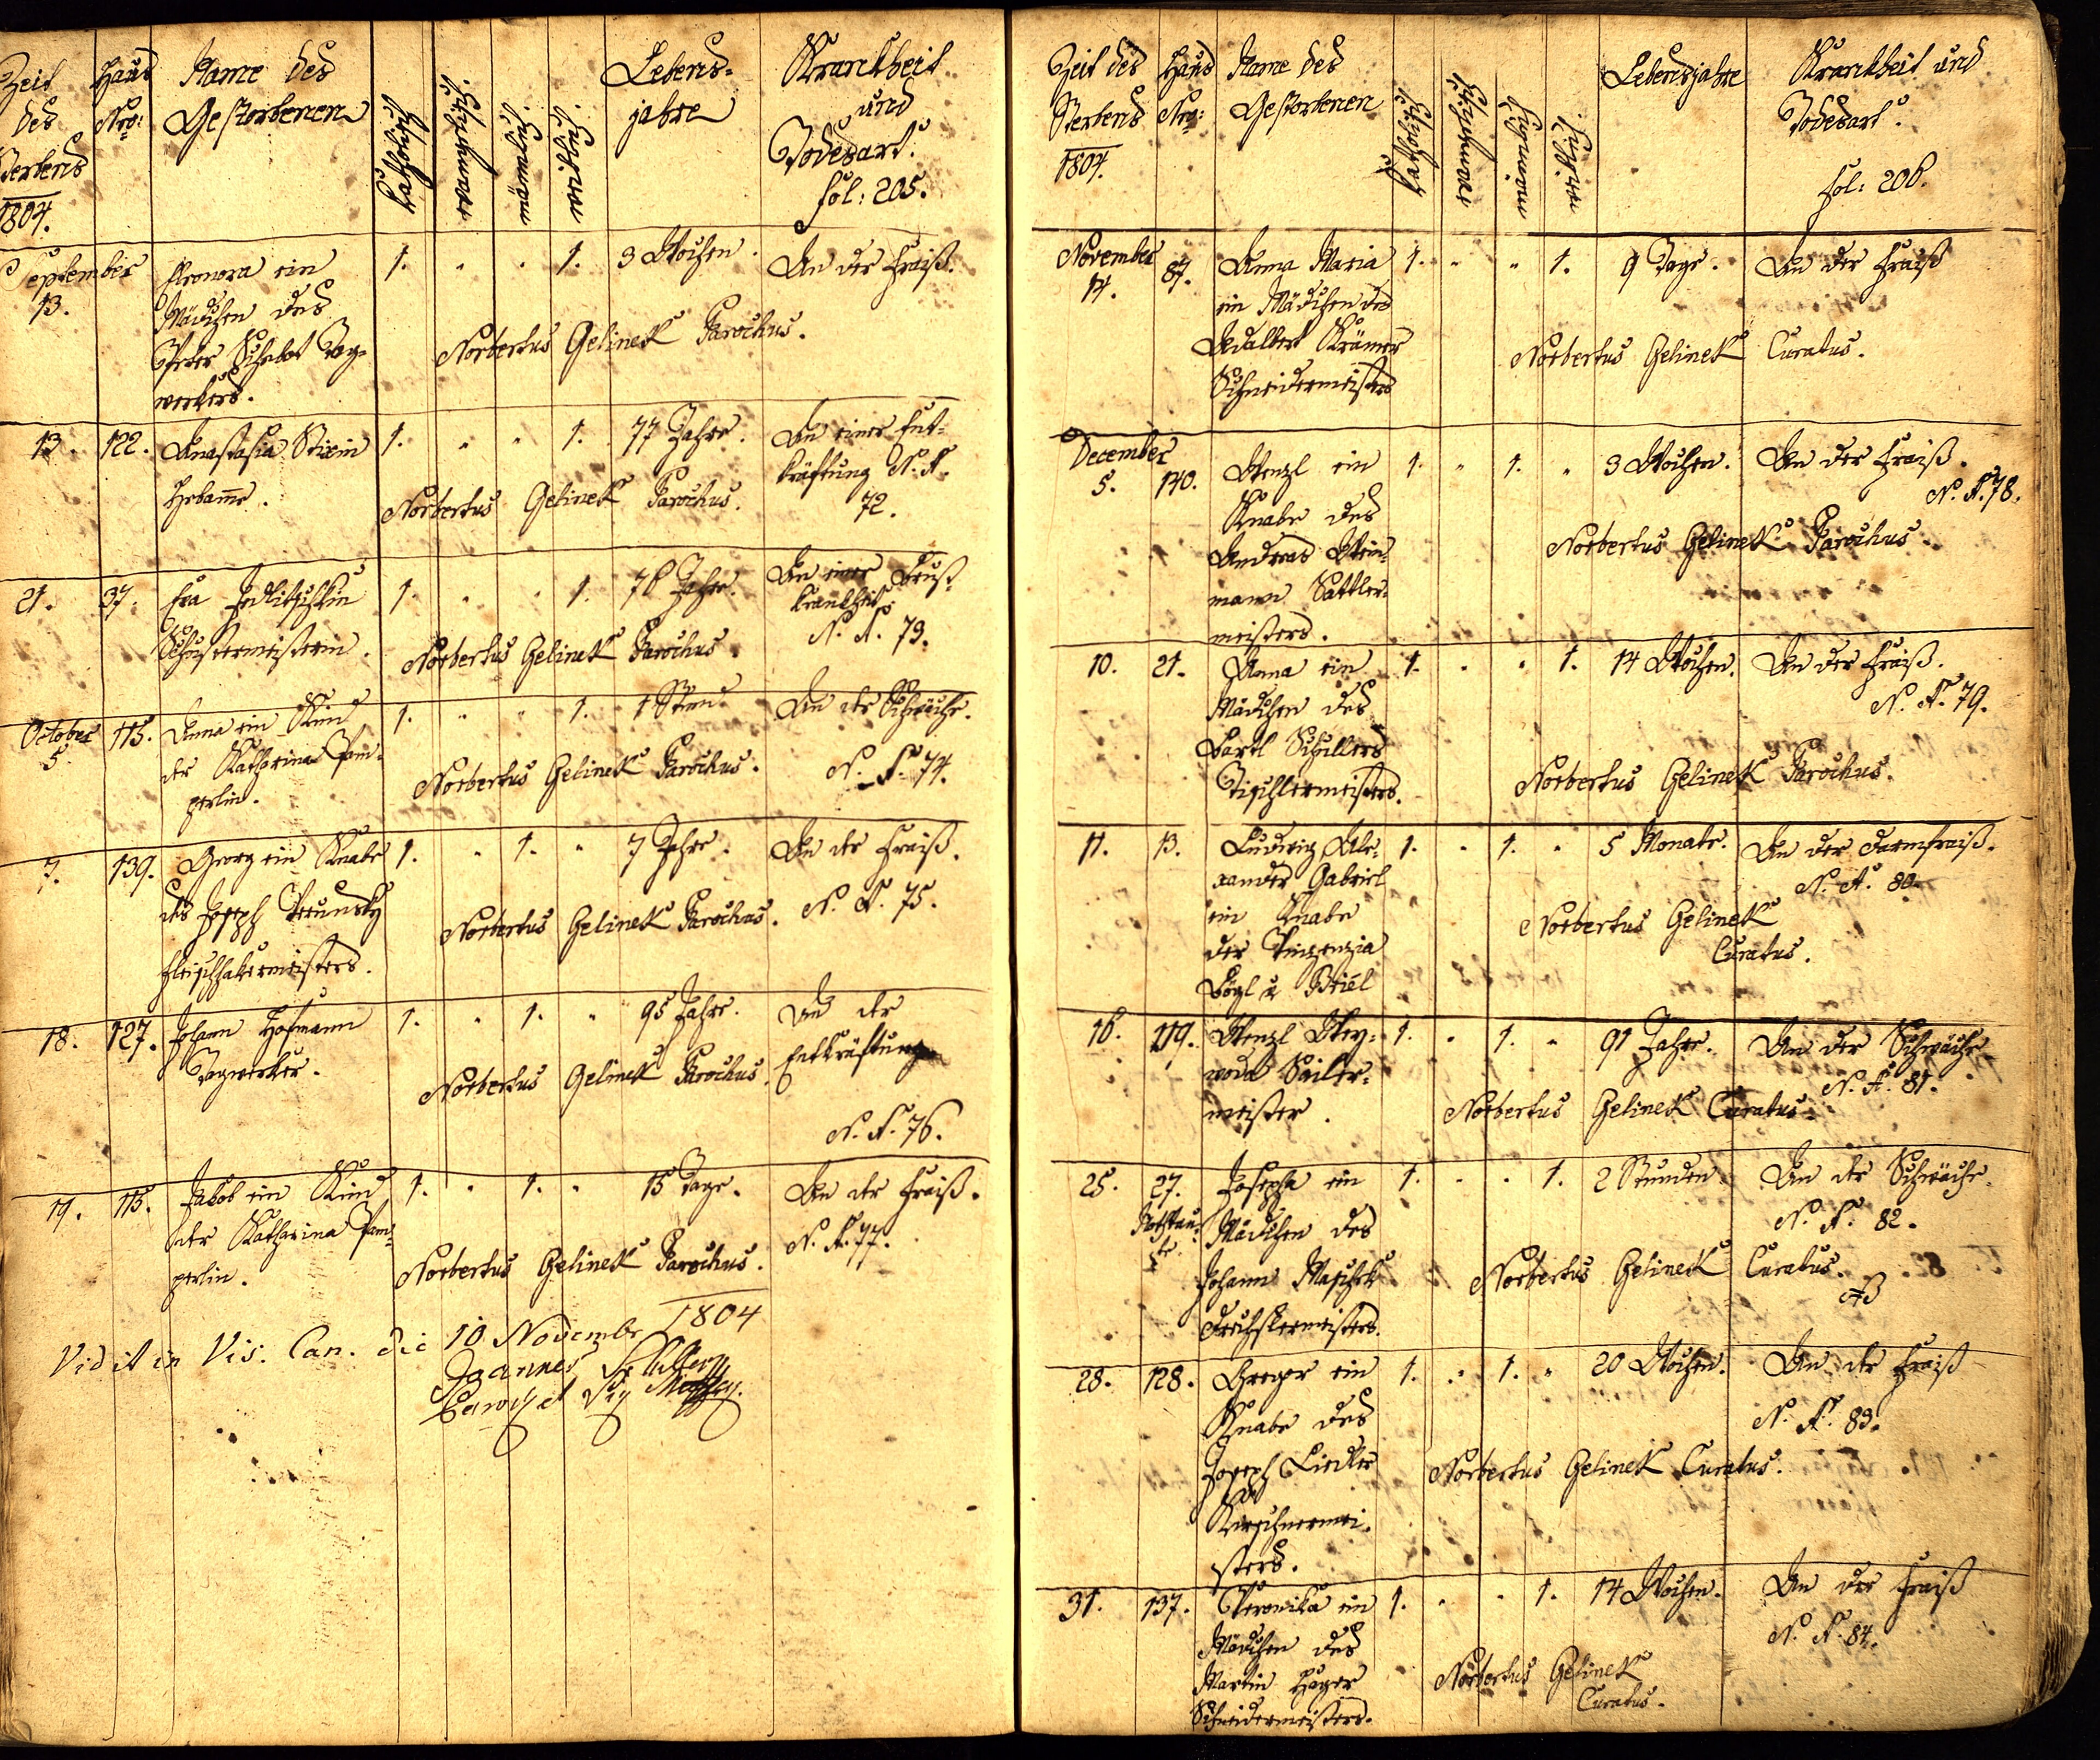 Zeit
des
Sterbens
1804.
Haus
Nro:
Name des
Gestorbenen
Katholisch
Männer
Lebens-
jahre
Krankheit
und
Todesart.
fol: 205.
September
13.
Eleonora ein
Mädchen des
Peter Tag-
werkers.
1. " " 1.
3 Wochen.
An der Fraiß.
Norbertus Gelinek Parochus.
13. 122.
Anastasia Stixin
Hebamme.
1. " " 1.
77 Jahre.
An einer Ent-
kräftung N. A.
72.
Norbertus Gelinek Parochus.
21. 37.
Eva
Schustermeisterin.
1. " " 1.
76 Jahre.
An einer Brust-
krankheit
N. A. 73.
Norbertus Gelinek Parochus.
October
5.
115.
Anna ein Kind
der Katharina Pam-
perlin.
1. " " 1.
1 Stund
An der Schwäche.
N. A. 74.
Norbertus Gelinek Parochus.
7. 139.
Georg ein Knabe
des Joseph
Fleischhakermeisters.
1. " 1. "
7 Jahre.
An der Fraiß.
N. A. 75.
Norbertus Gelinek Parochus.
18. 127.
Johann Hofmann
Tagwerker.
1. " 1. "
95 Jahre.
An der
Entkräftung
N. A. 76.
Norbertus Gelinek Parochus.
19. 115.
Jakob ein Kind
der Katharina Pam-
perlin.
1. " 1. "
15 Tage.
An der Fraiß.
N. A. 77.
Norbertus Gelinek Parochus.
Vidit in Vis. Can. die 10 Novembr 1804
Joannes
Zeit des
Sterbens
1804.
Haus
Nro:
Name des
Gestorbenen
Katholisch
Männer
Lebensjahre
Krankheit und
Todesart.
fol: 206.
November
14.
87.
Anna Maria
ein Mädchen des
Adalbert Krämer
Schneidermeisters
1. " " 1.
9 Tage.
An der Fraiß
Norbertus Gelinek Curatus.
December
5.
140.
Wenzl ein
Knabe des
Andreas Wein-
mann Sattler-
meisters.
1. " 1. "
3 Wochen.
An der Fraiß.
N. A. 78.
Norbertus Gelinek Parochus
10. 21.
Anna ein
Mädchen des
Bartl Schillers
Tischlermeisters.
1. " " 1.
14 Wochen.
An der Fraiß.
N. A. 79.
Norbertus Gelinek Parochus.
11. 13.
Ludwig Ale-
xander Gabriel
ein Knabe
der Vinzenzia
1. " 1. "
5 Monate.
An der Darmfraiß.
N. A. 80.
Norbertus Gelinek
Curatus.
16. 119.
Wenzl Wey-
woda Seiler-
meister.
1. " 1. "
91 Jahre.
An der Schwäche
N. A. 81.
Norbertus Gelinek Curatus.
25. 27.
Josepha ein
Mädchen des
Johann Maschek
Drechslermeisters.
1. " " 1.
2 Stunden
An der Schwäche.
N. A. 82.
Norbertus Gelinek Curatus.
28. 128.
Gregor ein
Knabe des
Joseph Liedler
Kirschnermei-
sters.
1. " 1. "
20 Wochen.
An der Fraiß
N. A. 83.
Norbertus Gelinek Curatus.
31. 137.
Veronika ein
Mädchen des
Martin Hager
Schneidermeisters.
1. " " 1.
14 Wochen.
An der Fraiß
N. A. 84.
Norbertus Gelinek
Curatus.